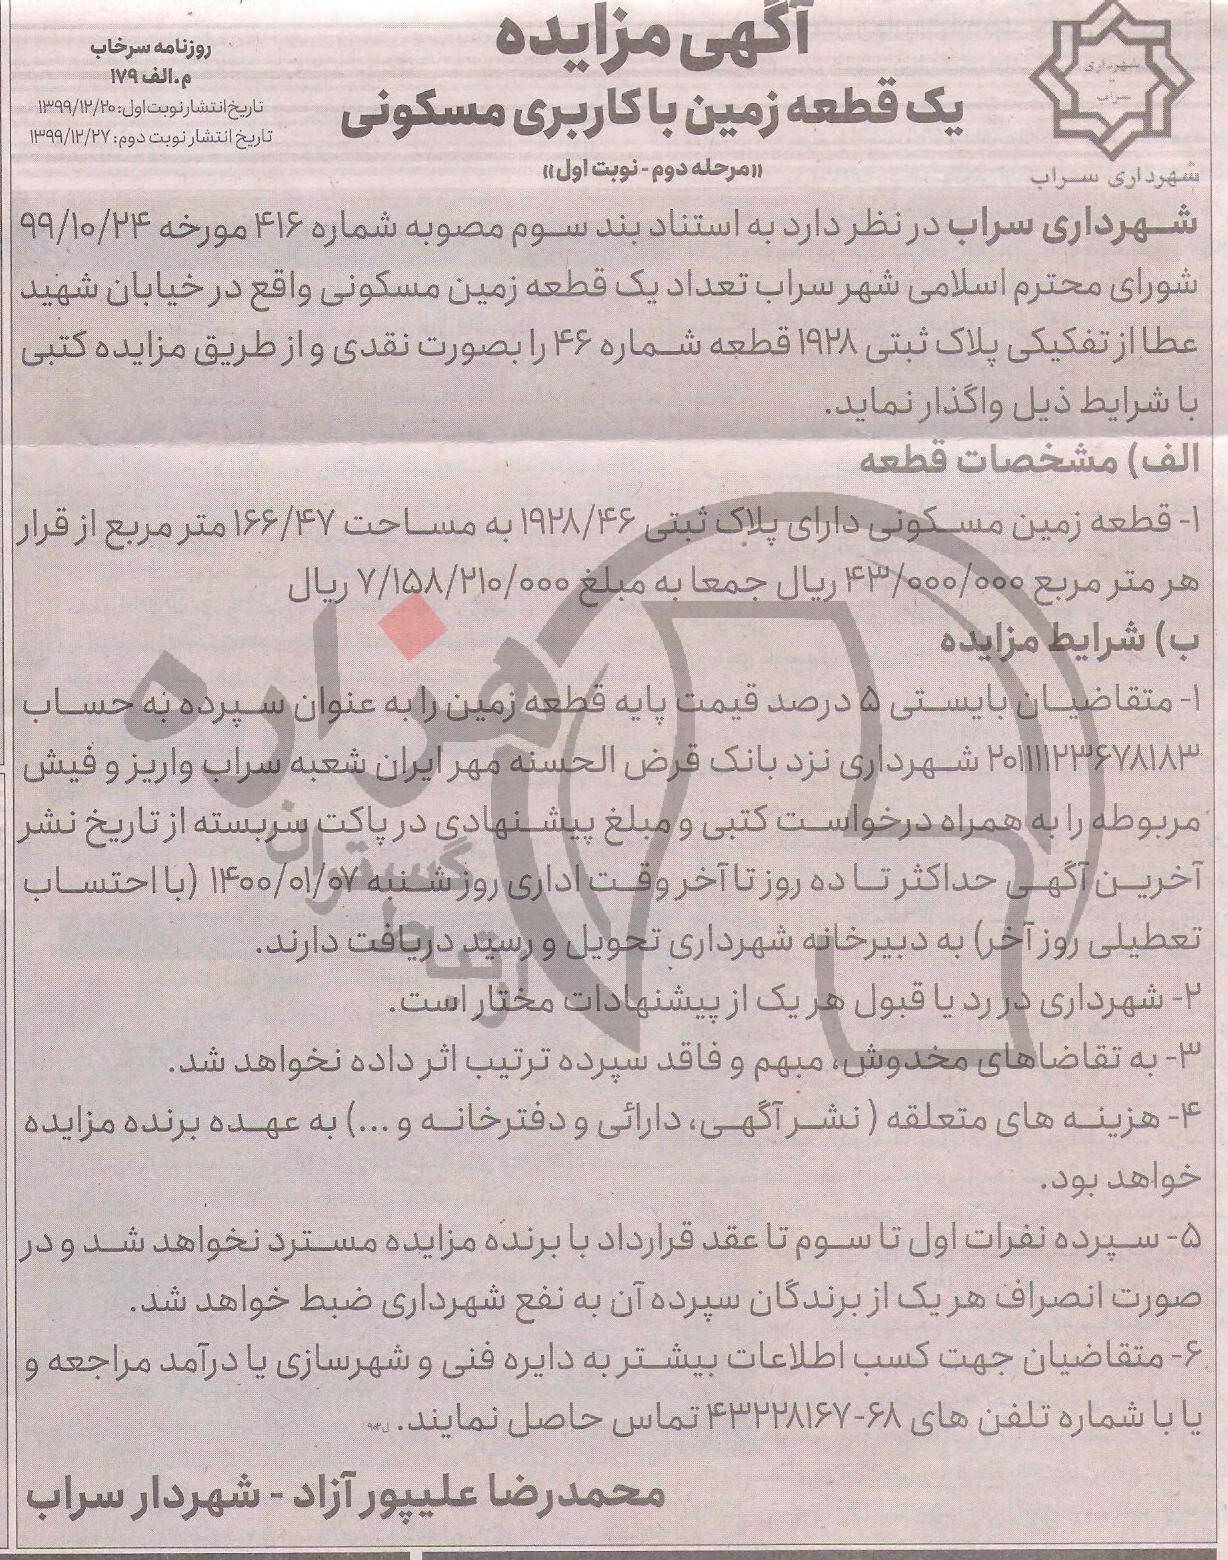 آگهی مزایده
یک قطعه زمین با کاربری مسکونی
«مرحله دوم - نوبت اول»
روزنامه سرخاب
م.الف ۱۷۹
تاریخ انتشار نوبت اول: ۱۳۹۹/۱۲/۲۰
تاریخ انتشار نوبت دوم: ۱۳۹۹/۱۲/۲۷
شهرداری
سراب
شهرداری سراب
شهرداری سراب در نظر دارد به استناد بند سوم مصوبه شماره ۴۱۶ مورخه ۹۹/۱۰/۲۴
شورای محترم اسلامی شهر سراب تعداد یک قطعه زمین مسکونی واقع در خیابان شهید
عطا از تفکیکی پلاک ثبتی ۱۹۲۸ قطعه شماره ۴۶ را بصورت نقدی و از طریق مزایده کتبی
با شرایط ذیل واگذار نماید.
الف) مشخصات قطعه
۱- قطعه زمین مسکونی دارای پلاک ثبتی ۱۹۲۸/۴۶ به مساحت ۱۶۶/۴۷ متر مربع از قرار
هر متر مربع ۴۳/۰۰۰/۰۰۰ ریال جمعا به مبلغ ۷/۱۵۸/۲۱۰/۰۰۰ ریال
ب) شرایط مزایده
۱- متقاضیان بایستی ۵ درصد قیمت پایه قطعه زمین را به عنوان سپرده به حساب
۲۰۱۱۱۱۲۳۶۷۸۱۸۳ شهرداری نزد بانک قرض الحسنه مهر ایران شعبه سراب واریز و فیش
مربوطه را به همراه درخواست کتبی و مبلغ پیشنهادی در پاکت سربسته از تاریخ نشر
آخرین آگهی حداکثر تا ده روز تا آخر وقت اداری روز شنبه ۱۴۰۰/۰۱/۰۷ (با احتساب
تعطیلی روز آخر) به دبیرخانه شهرداری تحویل و رسید دریافت دارند.
۲- شهرداری در رد یا قبول هر یک از پیشنهادات مختار است.
۳- به تقاضاهای مخدوش، مبهم و فاقد سپرده ترتیب اثر داده نخواهد شد.
۴- هزینه های متعلقه ( نشر آگهی، دارائی و دفترخانه و ...) به عهده برنده مزایده
خواهد بود.
۵- سپرده نفرات اول تا سوم تا عقد قرارداد با برنده مزایده مسترد نخواهد شد و در
صورت انصراف هر یک از برندگان سپرده آن به نفع شهرداری ضبط خواهد شد.
۶- متقاضیان جهت کسب اطلاعات بیشتر به دایره فنی و شهرسازی یا درآمد مراجعه و
یا با شماره تلفن های ۶۸-۴۳۲۲۸۱۶۷ تماس حاصل نمایند.
محمدرضا علیپور آزاد - شهردار سراب
هزاره
گستران